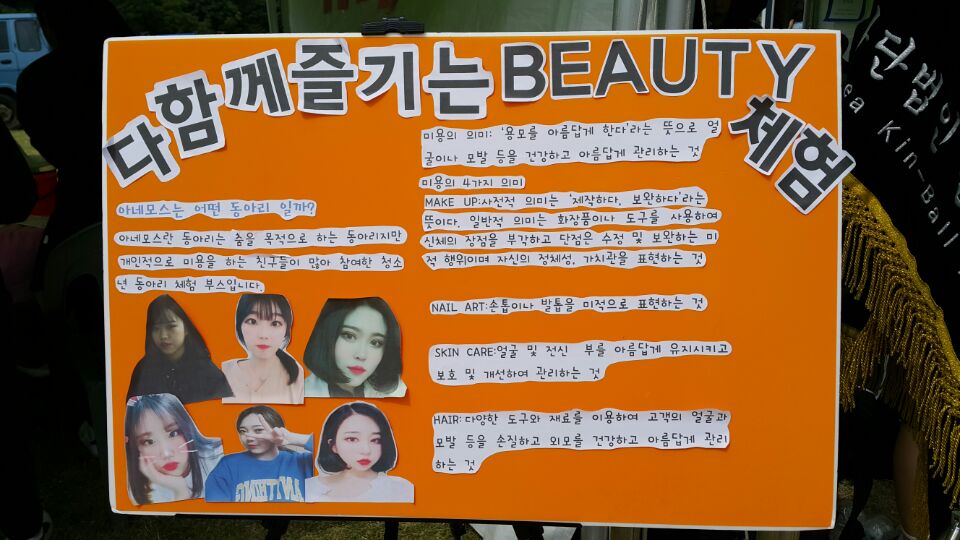 다함께즐기는BEAUTY체험
아네모스는 어떤 동아리 일까?
아네모스란 동아리는 춤을 목적으로 하는 동아리지만
개인적으로 미용을 하는 친구들이 많아 참여한 청소
년 동아리 체험 부스입니다.
미용의 의미: '용모를 아름답게 한다'라는 뜻으로 얼
굴이나 모발 등을 건강하고 아름답게 관리하는 것
미용의 4가지 의미
MAKE UP:사전적 의미는 '제작하다, 보완하다'라는
뜻이다. 일반적 의미는 화장품이나 도구를 사용하여
신체의 장점을 부각하고 단점은 수정 및 보완하는 미
적 행위이며 자신의 정체성, 가치관을 표현하는 것
NAIL ART:손톱이나 발톱을 미적으로 표현하는 것
SKIN CARE:얼굴 및 전신 부를 아름답게 유지시키고
보호 및 개선하여 관리하는 것
HAIR:다양한 도구와 재료를 이용하여 고객의 얼굴과
모발 등을 손질하고 외모를 건강하고 아름답게 관리
하는 것
단법인
ea Kin-Ball